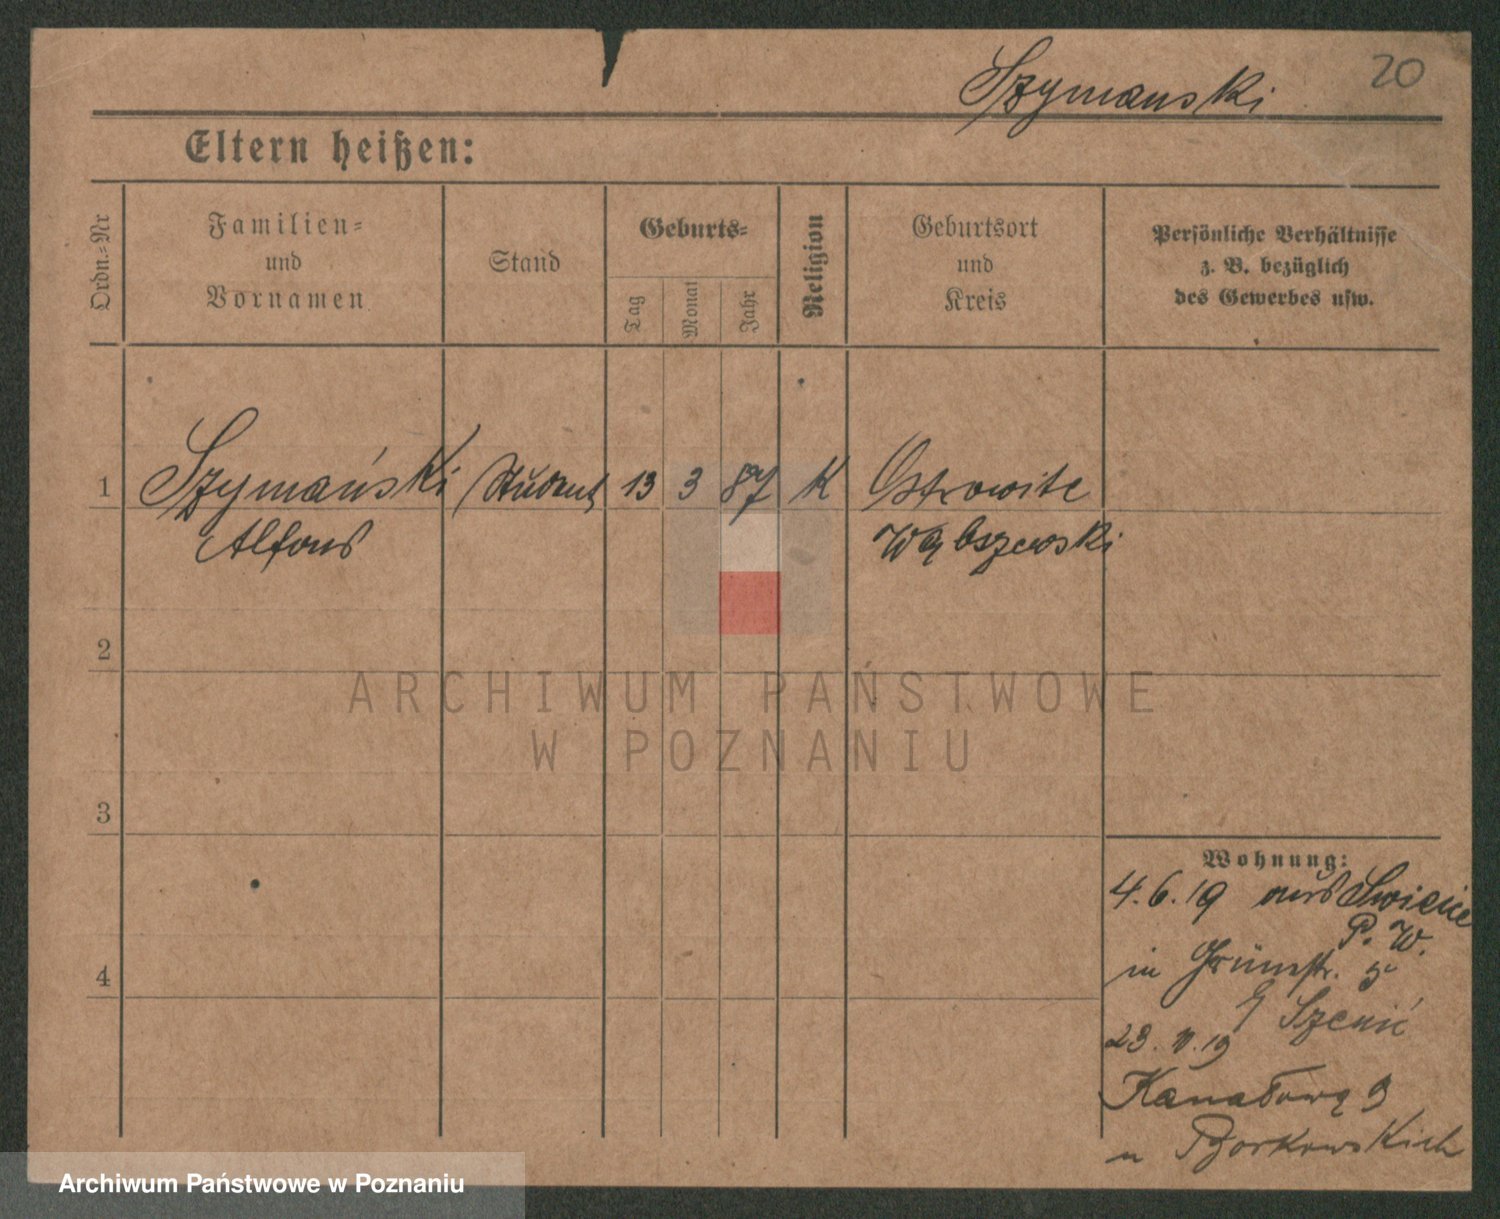 Szymanski 20
Eltern heißen:
Ordn.-Nr
Familien-
und
Vornamen
Stand
Geburts-
Tag
Monat
Jahr
Religion
Geburtsort
und
Kreis
Persönliche Verhältnisse
z. B. bezüglich
des Gewerbes usw.
1 Szymański Student 13 3 87 K Ostrowite
Alfons
2
3
4
Wohnung:
4.6.19 aus
P. W.
in Grünestr. 5
23. 19
Kanałową 9
u Borkowskich
ARCHIWUM PAŃSTWOWE
W POZNANIU
Archiwum Państwowe w Poznaniu